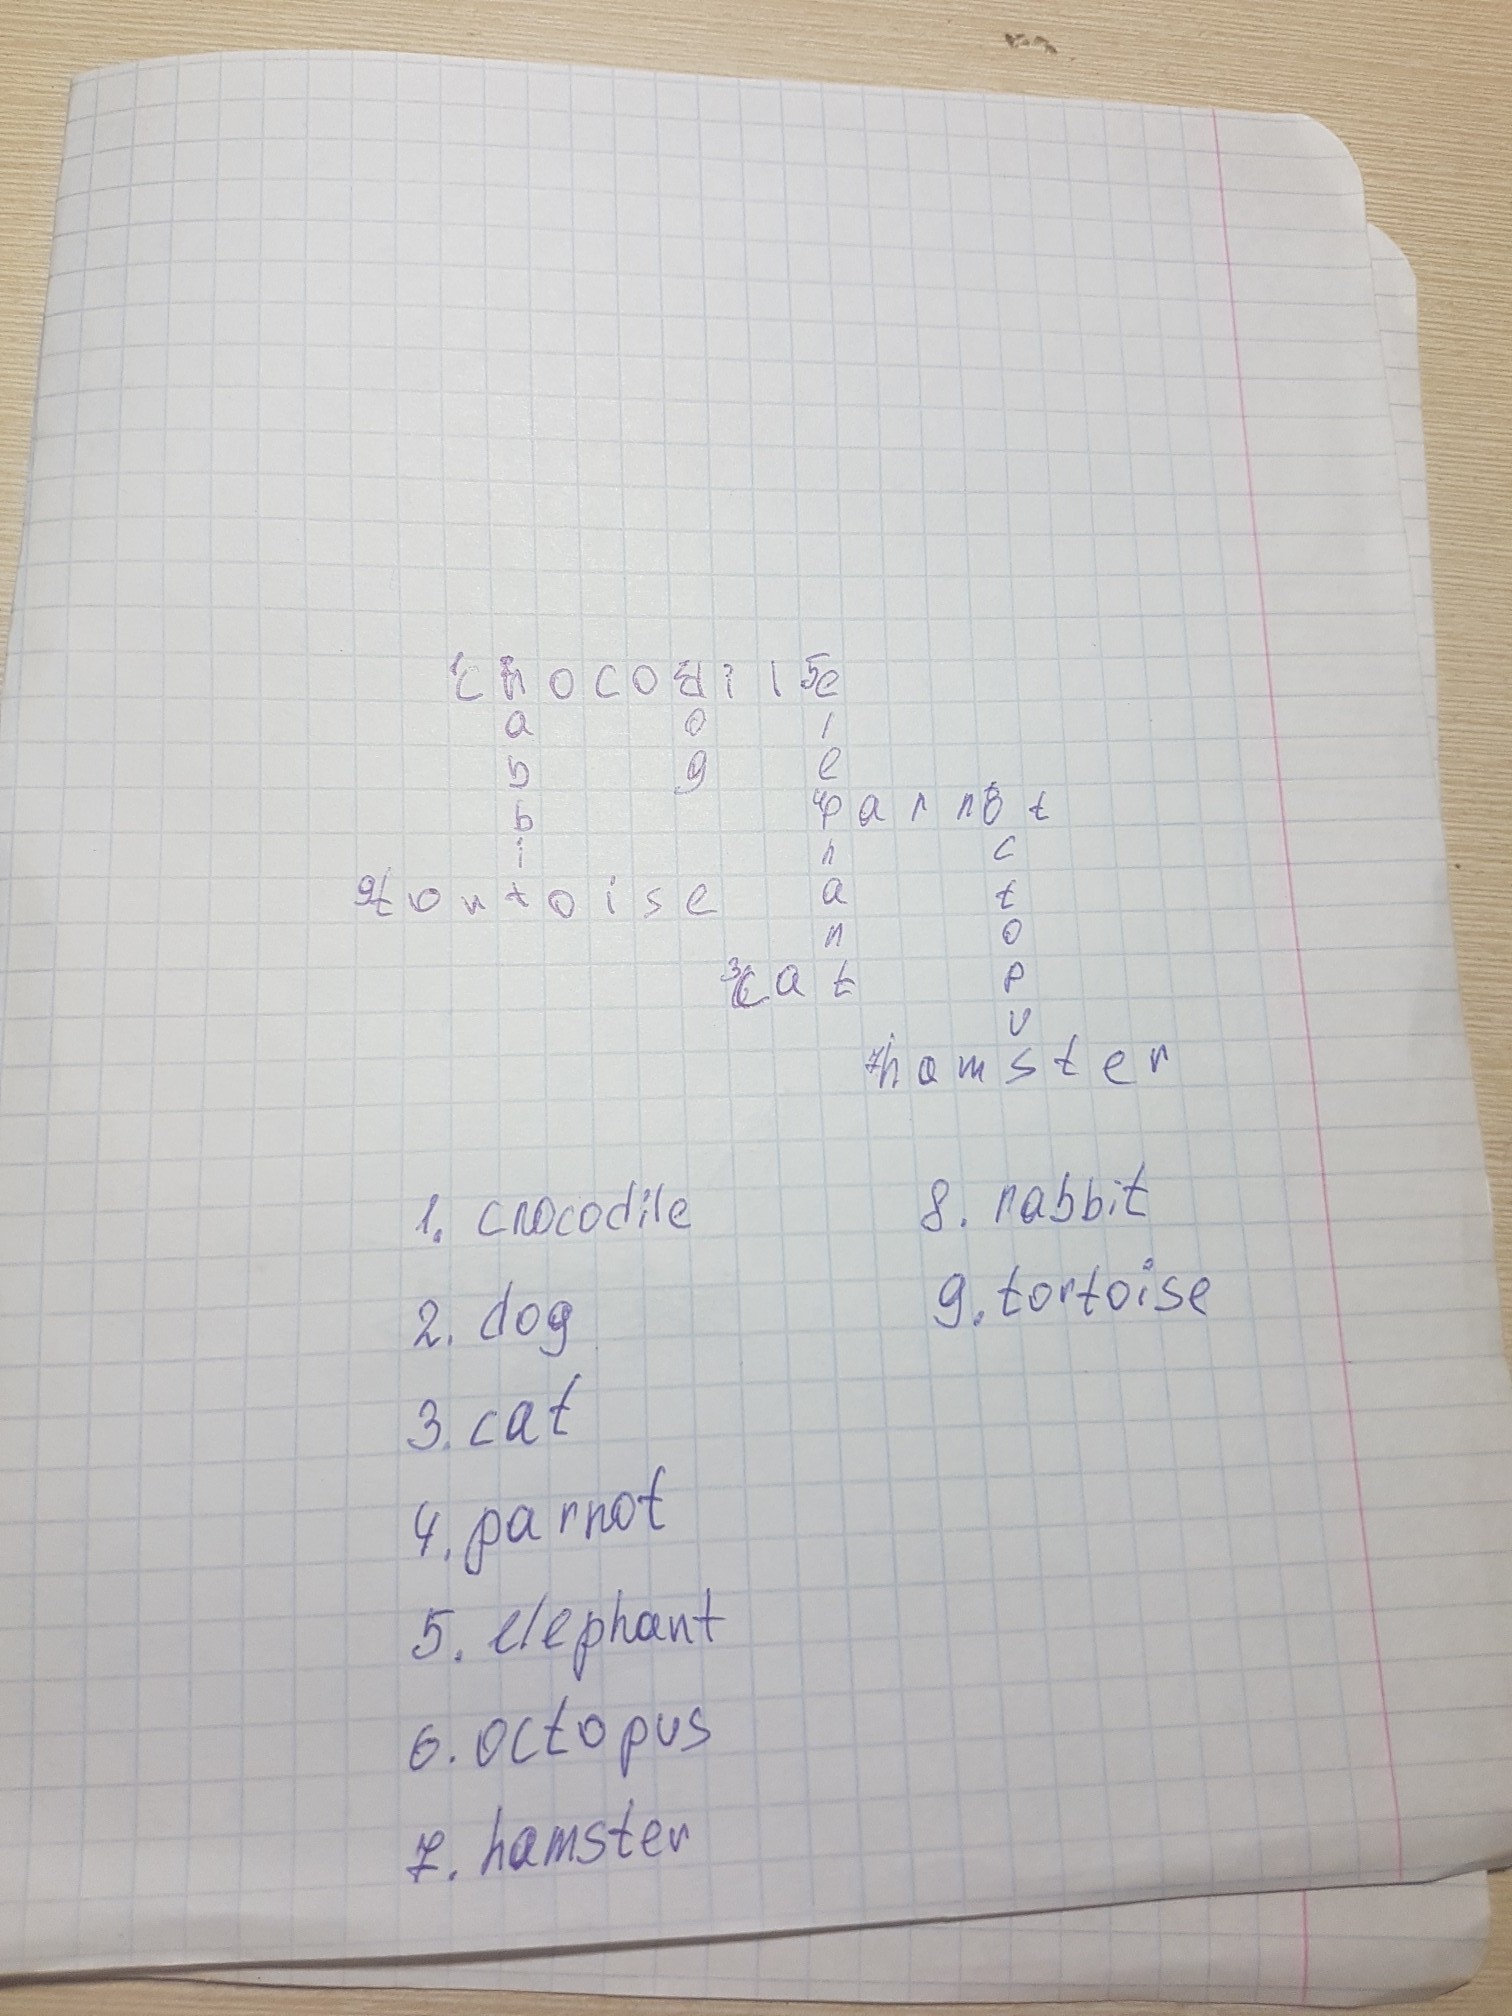 1crocodile
a o l
b g e
b 4parrot
i h c
9tortoise a t
n o
3cat p
u
7hamster
1. crocodile
2. dog
3. cat
4. parrot
5. elephant
6. octopus
7. hamster
8. rabbit
9. tortoise